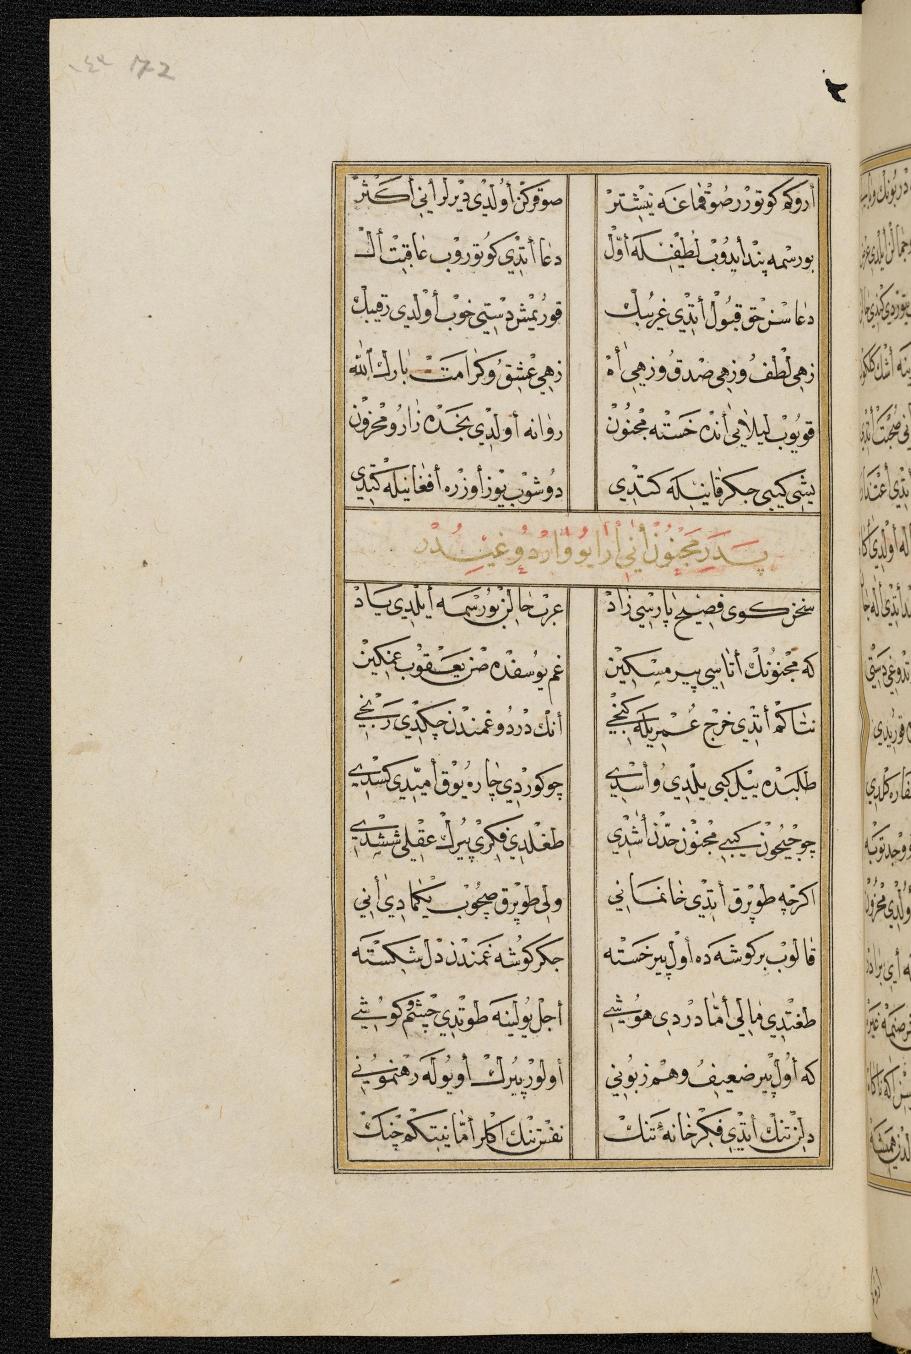 أروكه كوتورر صوقماغه نيشتر صوقركن أولدي ديرلر أني أكثر
بو رسمه پند ايدوب لطفله أول دعا أتدي كوتوروب عاقبت أل
دعاسن حق قبول أتدي غريبك قوريمش دستي خوب أولدي رقيبك
زهي لطف و زهي صدق و زهي أه زهي عشق و كرامت بارك الله
قويوب ليلايي أنده خسته مجنون روانه أولدي نجده زار و محزون
يشي كيبي جكر قانيله كتدي دوشوب يوز أوزره أفغانيله كتدي
پدر مجنون أني أرايو واردوغيدر
سخن كوى فصيح پارسي زاد عرب حالن بو رسمه أيلدي ياد
كه مجنونك أتاسي پير مسكين غم يوسفده صن يعقوب غمكين
نتاكم أتدي خرج عمريله كنجي أنك درد و غمندن چكدي رنجي
طلبده ييل كبي يلدي و أسدي چو كوردي چاره يوق أميدي كسدي
چو جيحون كيبي مجنون حدن أشدي طغلدي فكري پيرك عقلي ششدي
اكرچه طوپرق أتدي خانماني ولى طوپرق صچوب يكمادي أني
قالوب بر كوشه ده أول پير خسته جكر كوشه غمندن دل شكسته
طغتدي مالي أما دردي هوشي أجل يولينه طوتدي چشم كوشي
كه أول پير ضعيف و هم زبوني أولور پيرك أو يوله رهنموني
دلن تنك أيتدي فكر خانهٔ تنك نفس تنك اكلر أما نيتكم چنك